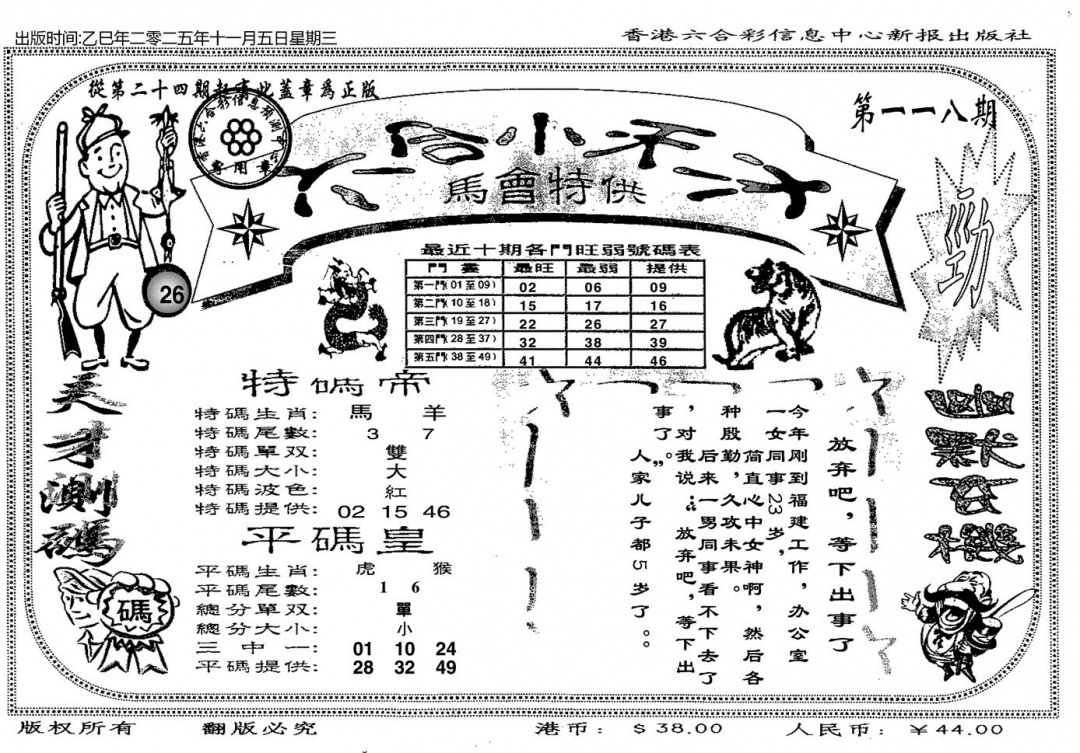 出版时间:乙巳年二零二五年十一月五日星期三
香港六合彩信息中心新报出版社
從第二十四期起有此蓋章爲正版
第一一八期
專用章
六合小天才
馬會特供
26
勁
最近十期各門旺弱號碼表
門 最旺 最弱 提供
第一門(01至09) 02 06 09
第二門(10至18) 15 17 16
第三門(19至27) 22 26 27
第四門(28至37) 32 38 39
第五門(38至49) 41 44 46
天才測碼
特碼帝
特碼生肖: 馬 羊
特碼尾數: 3 7
特碼單双: 雙
特碼大小: 大
特碼波色: 紅
特碼提供: 02 15 46
平碼皇
平碼生肖: 虎 猴
平碼尾數: 1 6
總分單双: 單
總分大小: 小
三中一: 01 10 24
平碼提供: 28 32 49
碼
放弃吧，等下出事了
今年刚到福建工作，办公室
一女同事23岁，
简直心中女神啊，然后各
种殷勤，久攻未果。
后来一男同事看不下去了
，对我说：“放弃吧，等下出
事了”。
人家儿子都5岁了。。
幽默玄機
版权所有 翻版必究 港币: $38.00 人民币: ¥44.00